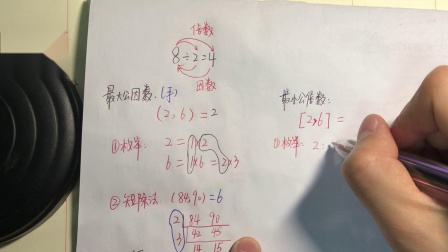 倍数
8÷2=4
因数
最大公因数:(手)
(2,6)=2
①枚举: 2=1×2
6=1×6=2×3
②短除法 (84,90)=6
2 84 90
3 42 45
14 15
最小公倍数:
[2,6]=
①枚举: 2: